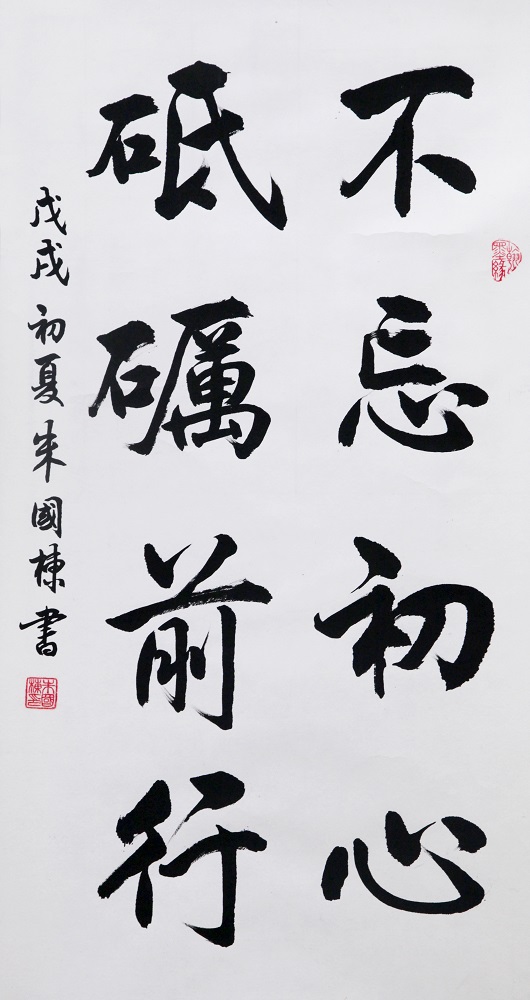 不忘初心
砥礪前行
戊戌初夏朱國棟書